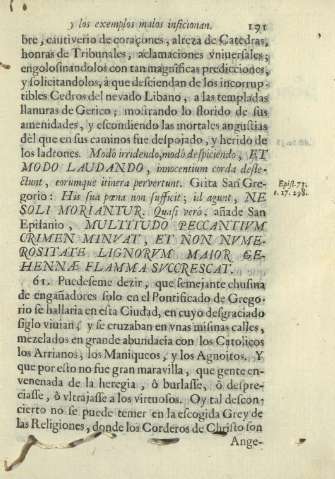 y los exemplos malos inficionan. 191
bre, cautiverio de coraçones, alteza de Catedras,
honras de Tribunales, aclamaciones vniuersales;
engolosinandolos con tan magnificas predicciones,
y solicitandolos, à que desciendan de los incorrup-
tibles Cedros del nevado Libano, a las templadas
llanuras de Gerico; mostrando lo florido de sus
amenidades, y escondiendo las mortales angustias
dél que en sus caminos fue despojado, y herido de
los ladrones. Modò irridendo, modò despiciendo, ET
MODO LAUDANDO, innocentium corda defle-
ctunt, eorumque itinera pervertunt. Grita San Gre-
gorio: His sua pœna non sufficit; id agunt, NE
SOLI MORIANTUR. Quasi verò, añade San
Epifanio, MULTITUDO PECCANTIVM
CRIMEN MINVAT, ET NON NVME-
ROSITATE LIGNORVM MAIOR GE-
HENNÆ FLAMMA SVCCRESCAT.
Epist. 73.
l. 17. 298.
61. Puedeseme dezir, que semejante chusma
de engañadores solo en el Pontificado de Grego-
rio se hallaria en esta Ciudad, en cuyo desgraciado
siglo viuian, y se cruzaban en vnas mismas calles,
mezclados en grande abundácia con los Catolicos
los Arrianos, los Maniqueos, y los Agnoitos. Y
que por esto no fue gran maravilla, que gente en-
venenada de la heregia, ò burlasse, ò despre-
ciasse, ò vltrajasse a los virtuosos. Oy tal descon-
cierto no se puede temer en la escogida Grey de
las Religiones, donde los Corderos de Christo son
Ange-